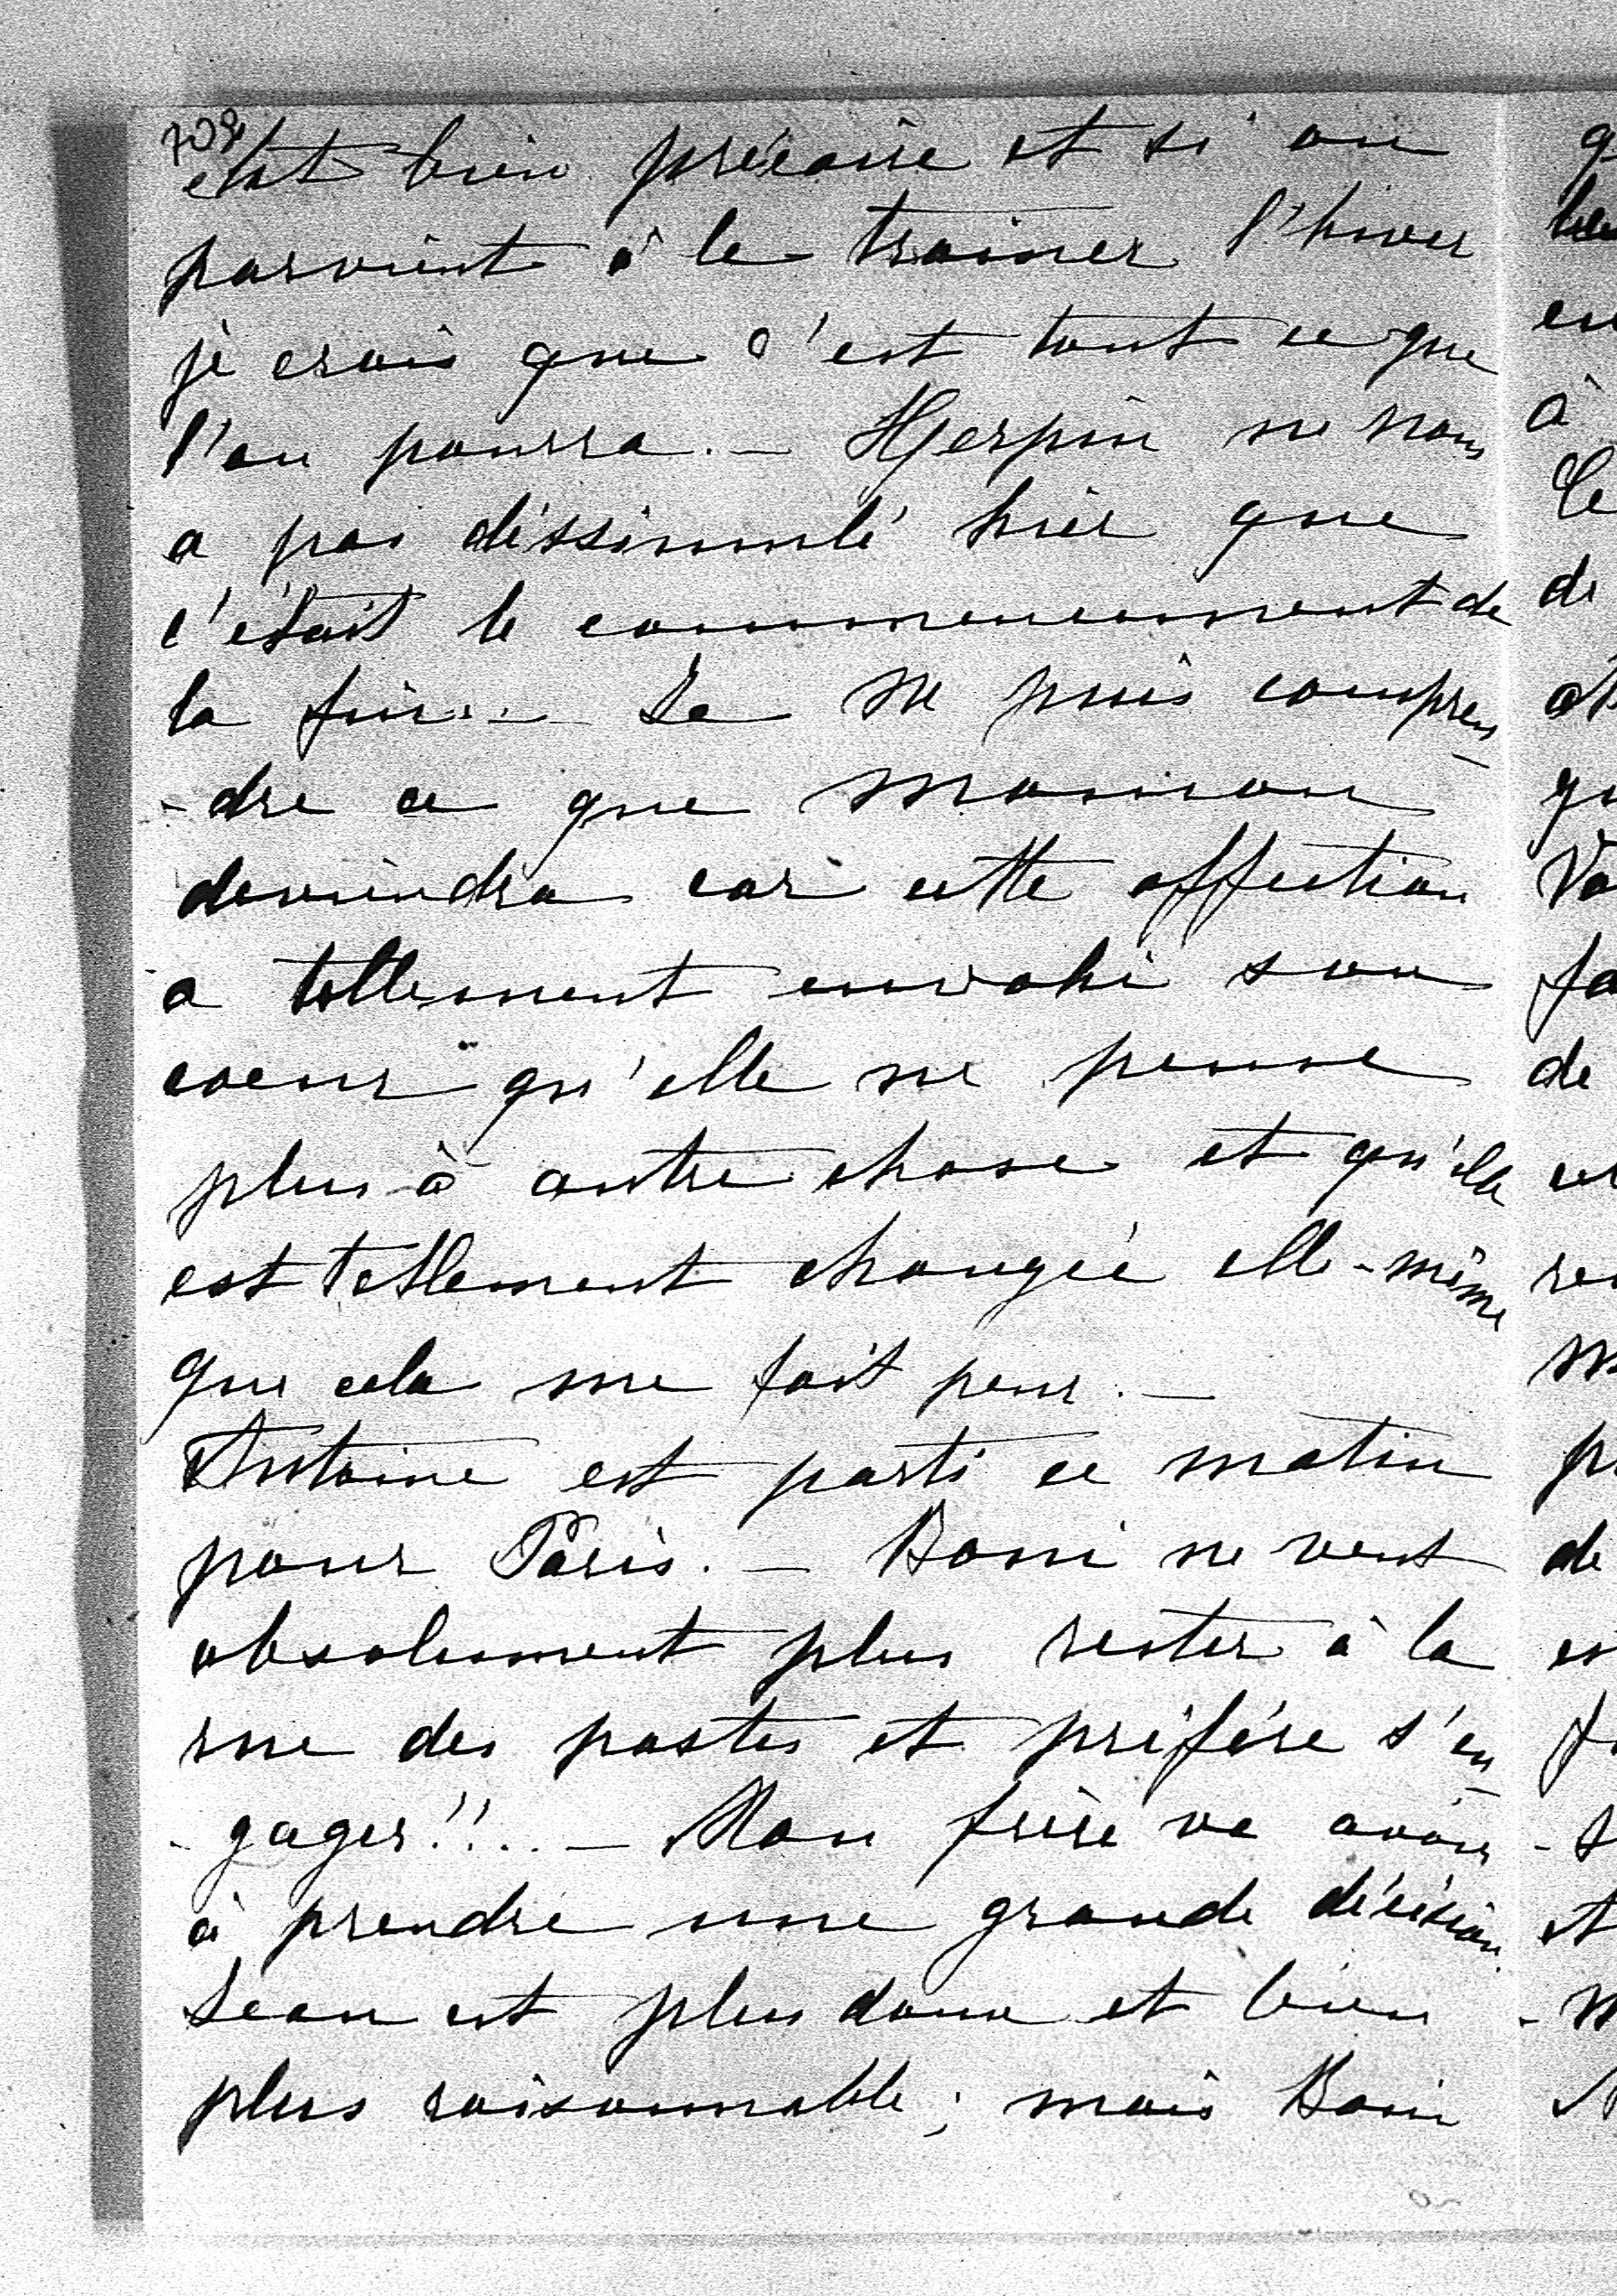 708
état bien précaire et si on
parvient à le trainer l'hiver
je crois que c'est tout ce que
l'on pourra. — Herpin ne nous
a pas dissimulé hier que
c'était le commencement de
la fin... — Je ne puis compren
- dre ce que maman
deviendra car cette affection
a tellement envahi son
coeur qu'elle ne pense
plus à autre chose et qu'elle
est tellement changée elle-même
que cela me fait peur. —
Antoine est parti ce matin
pour Paris. — Boni ne veut
absolument plus rester à la
rue des postes et préfère s'en
- gager!!... — Mon frère va avoir
à prendre une grande décision.
Jean est plus doux et bien
plus raisonnable; mais Boni